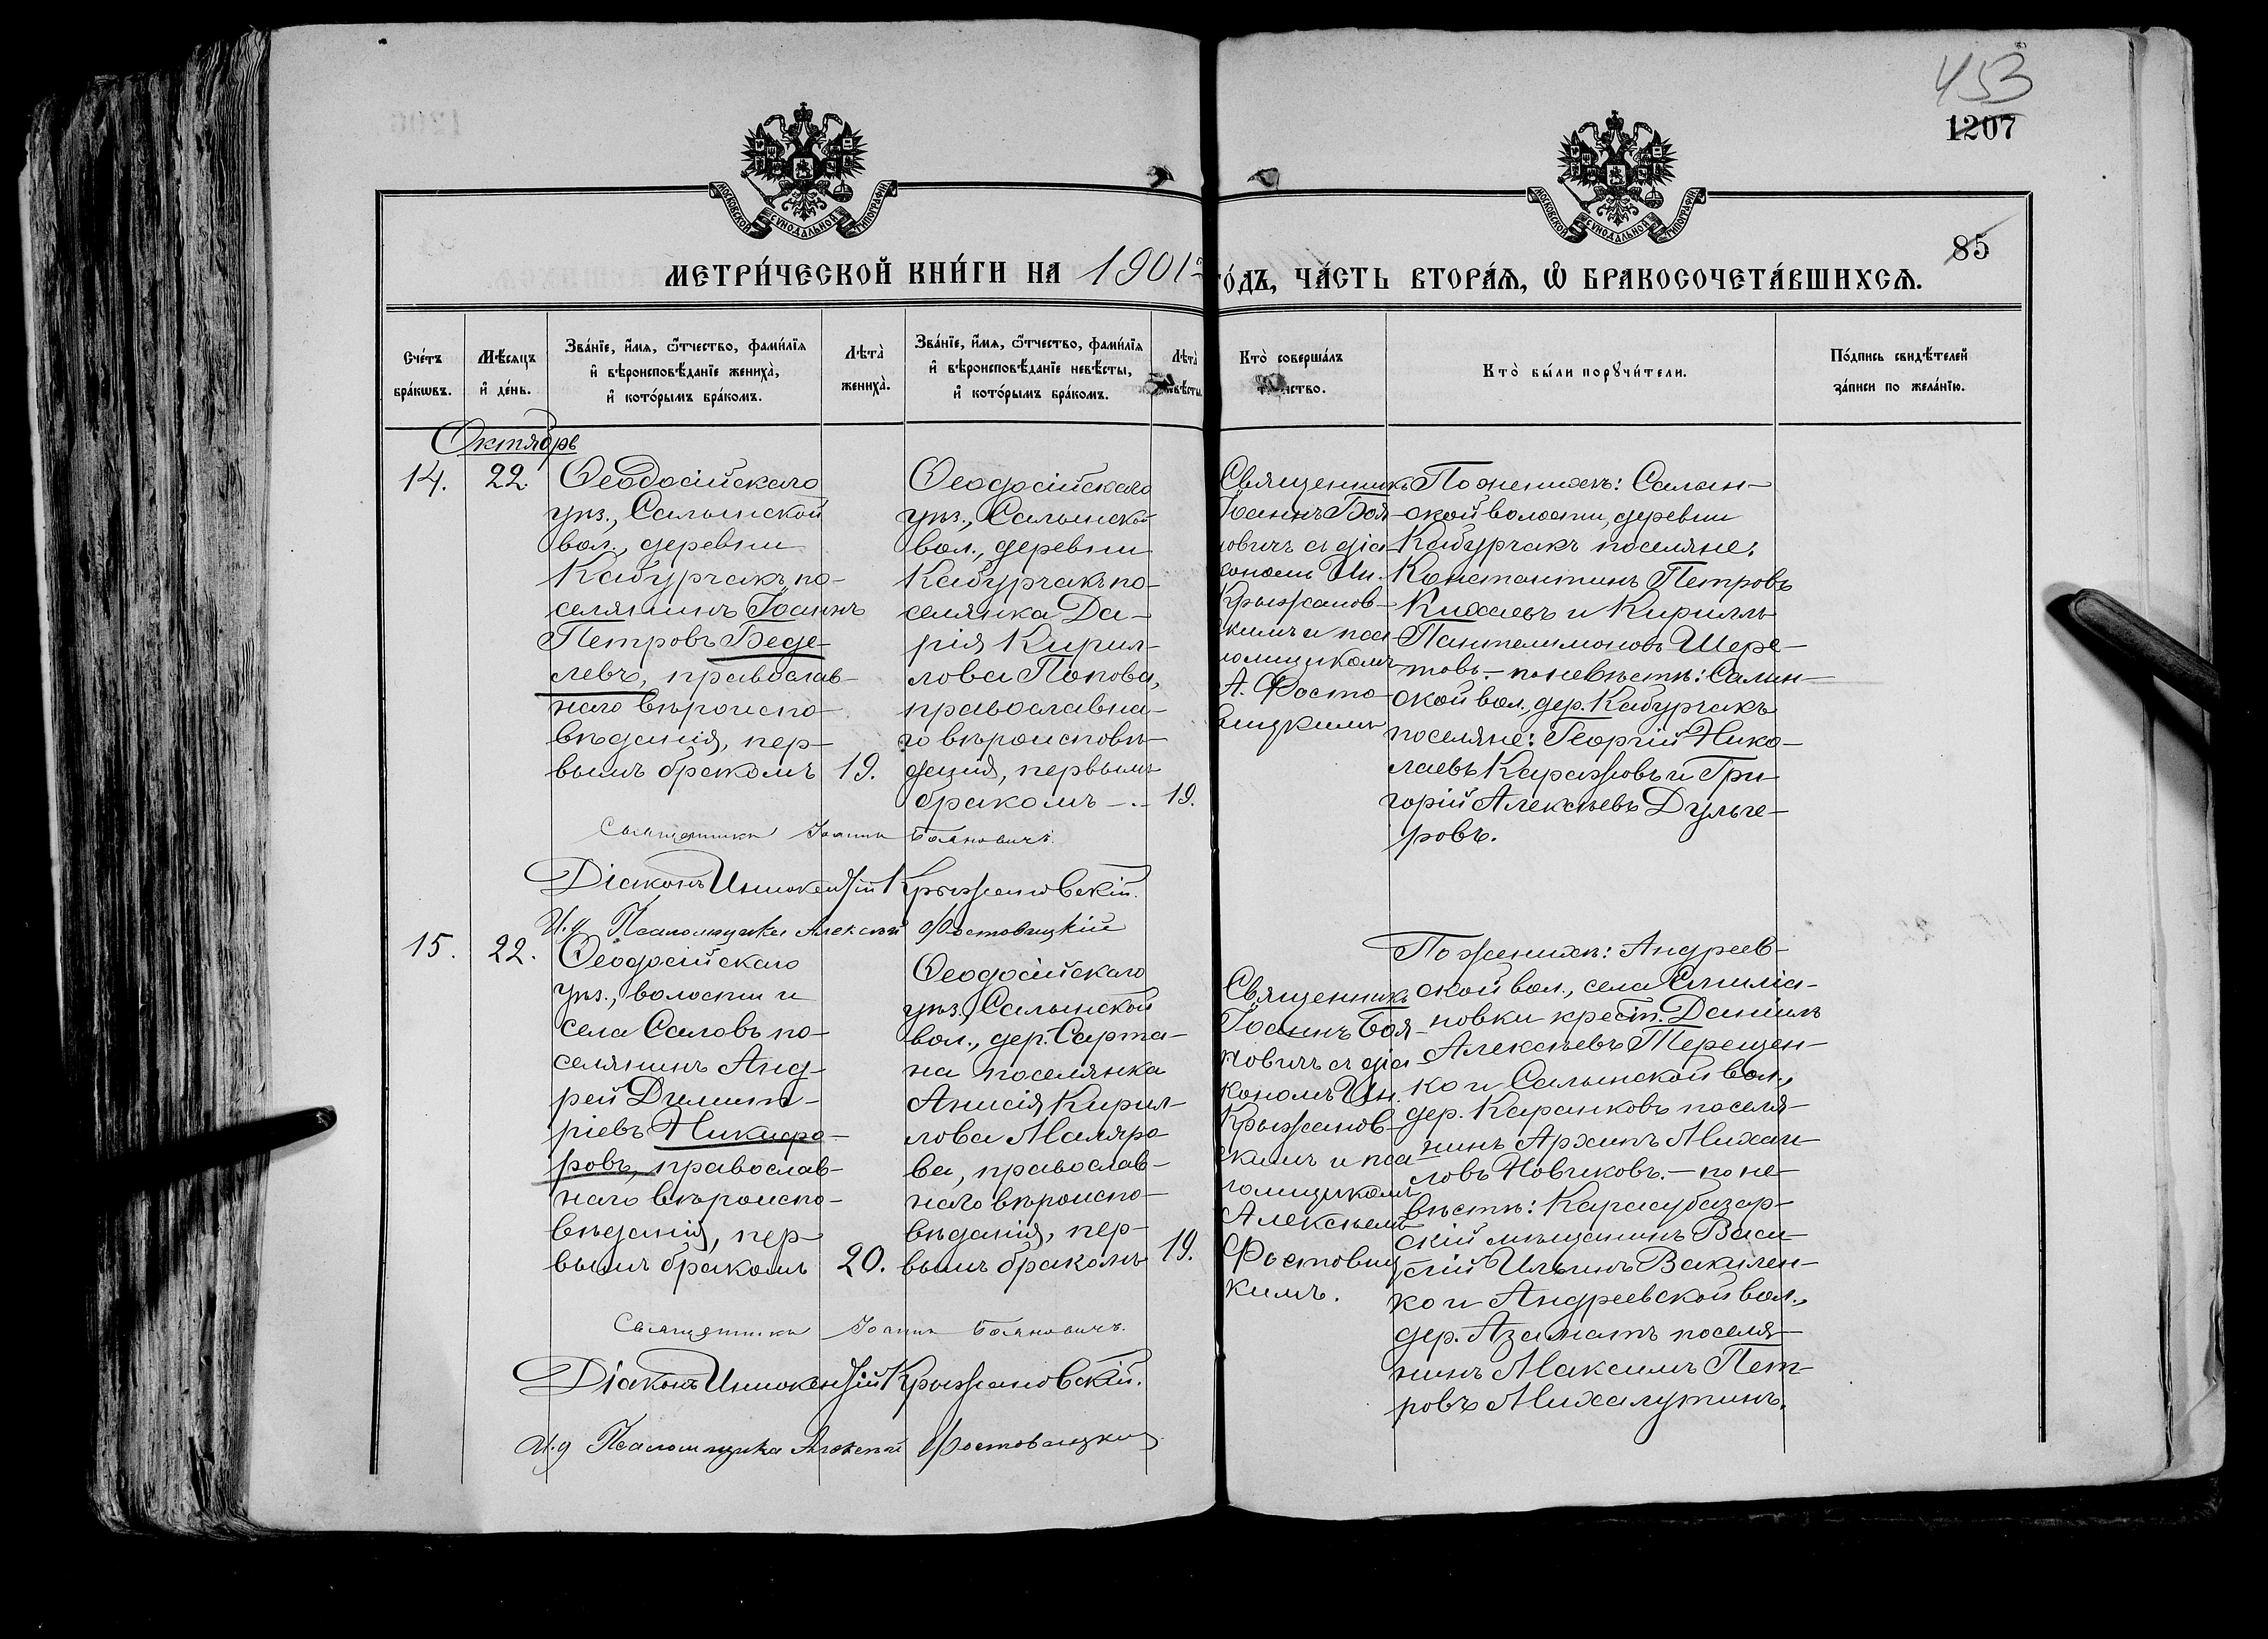 453
1207
85
МОСКОВСКОЙ СѴНОДАЛЬНОЙ ТИПОГРАФІИ
МОСКОВСКОЙ СѴНОДАЛЬНОЙ ТИПОГРАФІИ
МЕТРИ́ЧЕСКОЙ КНИ́ГИ НА 1901 го́дъ, ЧА́СТЬ ВТОРА́Ѧ, Ѡ҆ БРАКОСОЧЕТА́ВШИХСѦ.
Сче́тъ
бра́кѡвъ.
Мѣ́сяцъ
и҆ де́нь.
Зва́нїе, и҆́мѧ, ѻ҆́тчество, фами́лїѧ
и҆ вѣроисповѣ́данїе жениха̀,
и҆ кото́рымъ бра́комъ.
Лѣта̀
жениха̀.
Зва́нїе, и҆́мѧ, ѻ҆́тчество, фами́лїѧ
и҆ вѣроисповѣ́данїе невѣ́сты,
и҆ кото́рымъ бра́комъ.
Лѣта̀
невѣ́сты
Кто̀ соверша́лъ
таинство.
Кто̀ бы́ли порꙋчи́тели.
По́дпись свидѣ́телей
за́писи по жела́нїю.
Октябрь
14.
22.
Ѳеодосійскаго
уѣз., Салынской
вол., деревни
Кабурчакъ по-
селянинъ Іоаннъ
Петровъ Беде-
левъ, православ-
наго вѣроиспо-
вѣданія, пер-
вымъ бракомъ
19.
Ѳеодосійскаго
уѣз., Салынской
вол., деревни
Кабурчакъ по-
селянка Да-
рія Кирил-
лова Попова,
православна-
го вѣроисповѣ-
данія, первымъ
бракомъ -.-
19.
Священникъ
Іоаннъ Боя-
новичъ съ діа-
кономъ Ин.
Крыжанов-
скимъ и пса
ломщикомъ
А. Фосто-
вицкимъ
По женихѣ: Салын-
ской волости, деревни
Кабурчакъ поселяне:
Константинъ Петровъ
Кихаевъ и Кириллъ
Пантелимоновъ Шере-
товъ. - по невѣстѣ: Салын-
ской вол., дер. Кабурчакъ
поселяне: Георгій Нико-
лаевъ Каражовъ и Гри-
горій Алексѣевъ Дульге-
ровъ.
Священникъ Іоаннъ Бояновичъ.
Діаконъ Иннокентій Крыжановскій.
И.д Псаломщика Алексѣй Фостовицкій
15.
22.
Ѳеодосійскаго
уѣз., волости и
села Саловъ по-
селянинъ Анд-
рей Димит-
ріевъ Никифо-
ровъ, православ-
наго вѣроиспо-
вѣданія, пер-
вымъ бракомъ
20.
Ѳеодосійскаго
уѣз., Салынской
вол., дер. Сарта-
на поселянка
Анисія Кирил-
лова Маляро-
ва, православ-
наго вѣроиспо-
вѣданія, пер-
вымъ бракомъ
19.
Священникъ
Іоаннъ Боя-
новичъ съ діа
кономъ Ин.
Крыжанов-
скимъ и пса
ломщикомъ
Алексѣемъ
Фостовиц
кимъ.
По женихѣ: Андреев-
ской вол., села Емиліа-
новки крест. Даніилъ
Алексѣевъ Терещен-
ко и Салынской вол.,
дер. Каранковъ поселя-
нинъ Архипъ Михаи-
ловъ Новиковъ. - по не-
вѣстѣ: Карасубазар-
скій мѣщанинъ Васи-
лій Ильинъ Вакилен-
ко и Андреевской вол.,
дер. Азаматъ поселя-
нинъ Максимъ Пет-
ровъ Михалутинъ.
Священникъ Іоаннъ Бояновичъ.
Діаконъ Иннокентій Крыжановскій.
И.д Псаломщика Алексѣй Фостовицкій